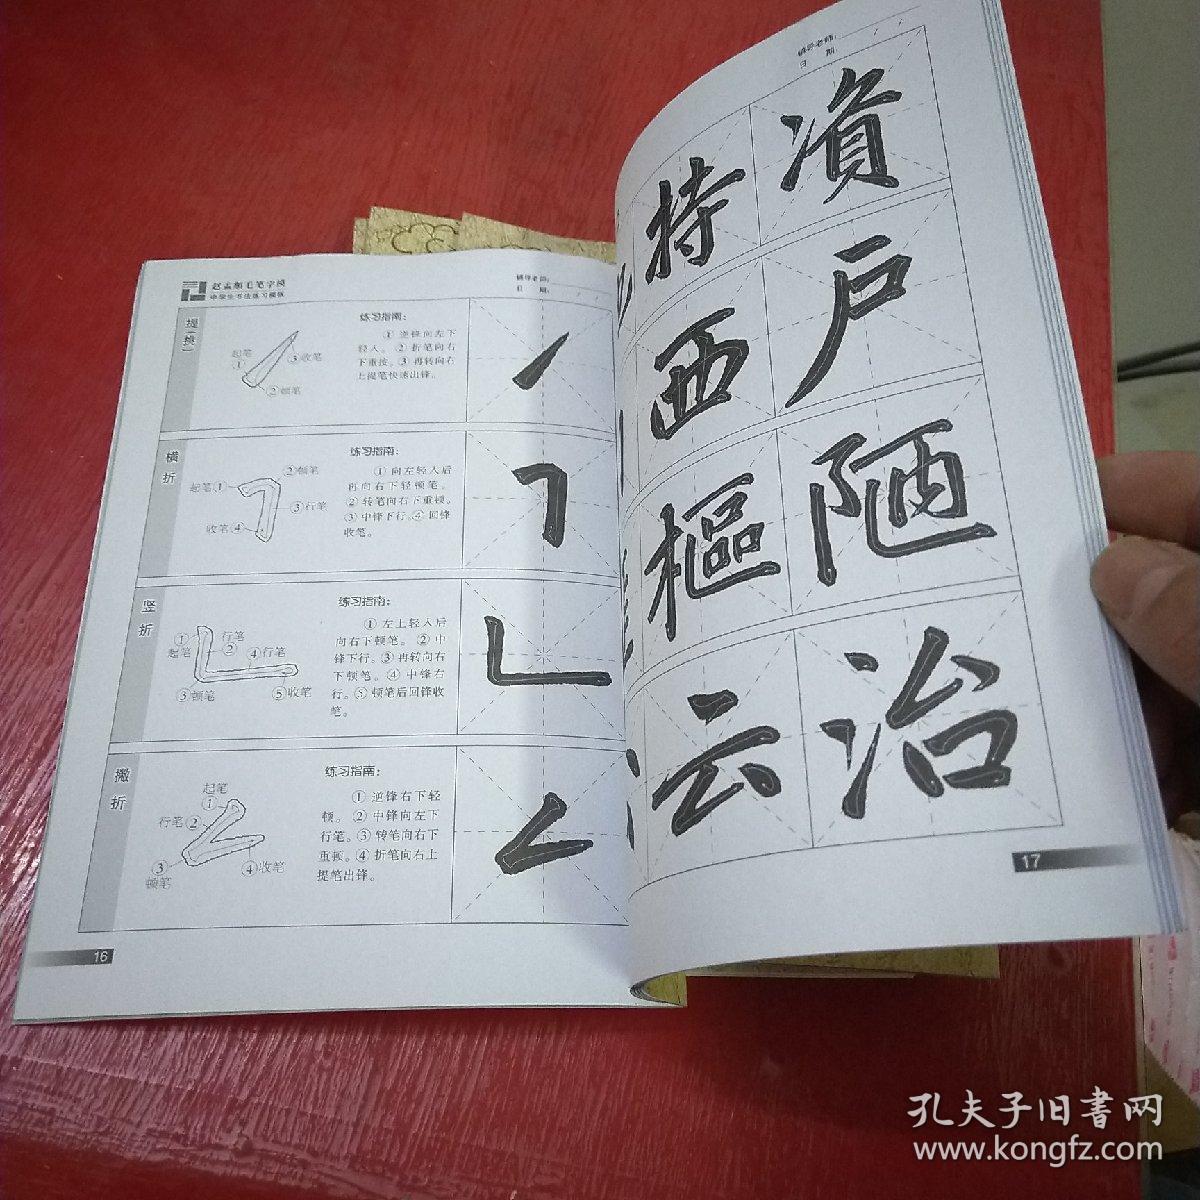 赵孟頫毛笔字模
中学生书法练习模板
辅导老师:
日 期:
提(挑)
起笔
①
③收笔
②顿笔
练习指南:
① 逆锋向左下
轻入。② 折笔向右
下重按。③ 再转向右
上提笔快速出锋。
横折
②顿笔
起笔①
③行笔
收笔④
练习指南:
① 向左轻入后
再向右下轻顿笔。
② 转笔向右下重顿。
③ 中锋下行。④ 回锋
收笔。
竖折
①
起笔
行笔
②
④行笔
③顿笔
⑤收笔
练习指南:
① 左上轻入后
向右下顿笔。② 中
锋下行。③ 再转向右
下顿笔。④ 中锋右
行。⑤ 顿笔后回锋收
笔。
撇折
起笔
①
行笔②
③
顿笔
④收笔
练习指南:
① 逆锋右下轻
顿。② 中锋向左下
行笔。③ 转笔向右下
重顿。④ 折笔向右上
提笔出锋。
16
辅导老师:
日 期
持
西
樞
云
户
陋
冶
17
孔夫子旧書网
www.kongfz.com